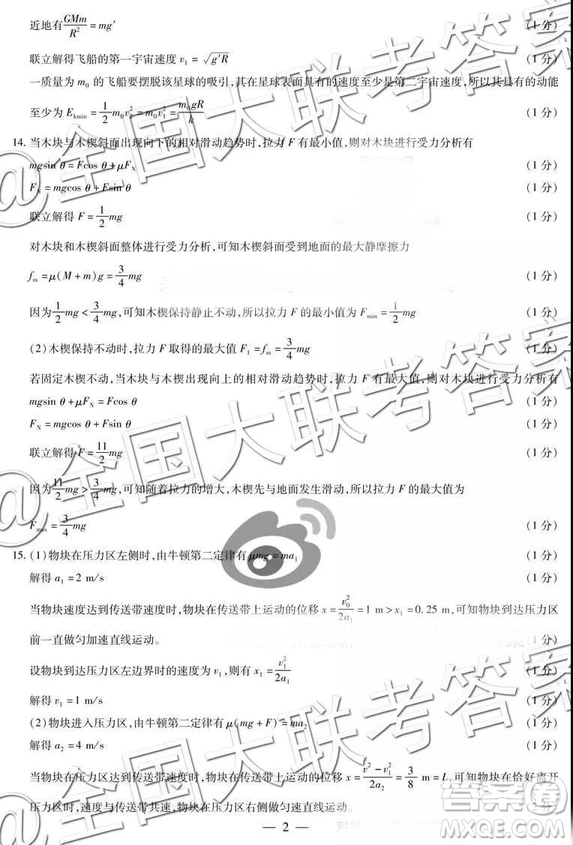 近地有GMm/R²=mg′ (1 分)
联立解得飞船的第一宇宙速度 v₁=√g′R (1 分)
一质量为 m₀ 的飞船要摆脱该星球的吸引,其在星球表面具有的速度至少是第二宇宙速度,所以其具有的动能
至少为 Eₖₘᵢₙ=1/2 m₀v₂²=m₀v₁²=m₀gR/k (1 分)
14. 当木块与木楔斜面出现向下的相对滑动趋势时,拉力 F 有最小值,则对木块进行受力分析有
mgsin θ=Fcos θ+μF_N (1 分)
F_N=mgcos θ+Fsin θ (1 分)
联立解得 F=1/2 mg (1 分)
对木块和木楔斜面整体进行受力分析,可知木楔斜面受到地面的最大静摩擦力
fₘ=μ(M+m)g=3/4 mg (1 分)
因为1/2 mg<3/4 mg,可知木楔保持静止不动,所以拉力 F 的最小值为 Fₘᵢₙ=1/2 mg (1 分)
(2)木楔保持不动时,拉力 F 取得的最大值 F₁=fₘ=3/4 mg (1 分)
若固定木楔不动,当木块与木楔出现向上的相对滑动趋势时,拉力 F 有最大值,则对木块进行受力分析有
mgsin θ+μF_N=Fcos θ (1 分)
F_N=mgcos θ+Fsin θ (1 分)
联立解得 F=11/2 mg (1 分)
因为11/2 mg>3/4 mg,可知随着拉力的增大,木楔先与地面发生滑动,所以拉力 F 的最大值为
Fₘₐₓ=3/4 mg (1 分)
15. (1)物块在压力区左侧时,由牛顿第二定律有 μmg=ma₁ (1 分)
解得 a₁=2 m/s (1 分)
当物块速度达到传送带速度时,物块在传送带上运动的位移 x=v₀²/2a₁=1 m>x₁=0.25 m,可知物块在压力区
前一直做匀加速直线运动。 (1 分)
设物块到达压力区左边界时的速度为 v₁,则有 x₁=v₁²/2a₁ (1 分)
解得 v₁=1 m/s (1 分)
(2)物块进入压力区,由牛顿第二定律有 μ(mg+F)=ma₂ (1 分)
解得 a₂=4 m/s (1 分)
当物块在压力区达到传送带速度时,物块在传送带上运动的位移 x=v²-v₁²/2a₂=3/8 m=L,可知物块在恰好离开
压力区时,与传送带共速,物块在压力区右侧做匀速直线运动。 (1 分)
— 2 —
@全国大联考答案
@全国大联考答案
@全国大联考答案
答案圈
MXQE.COM